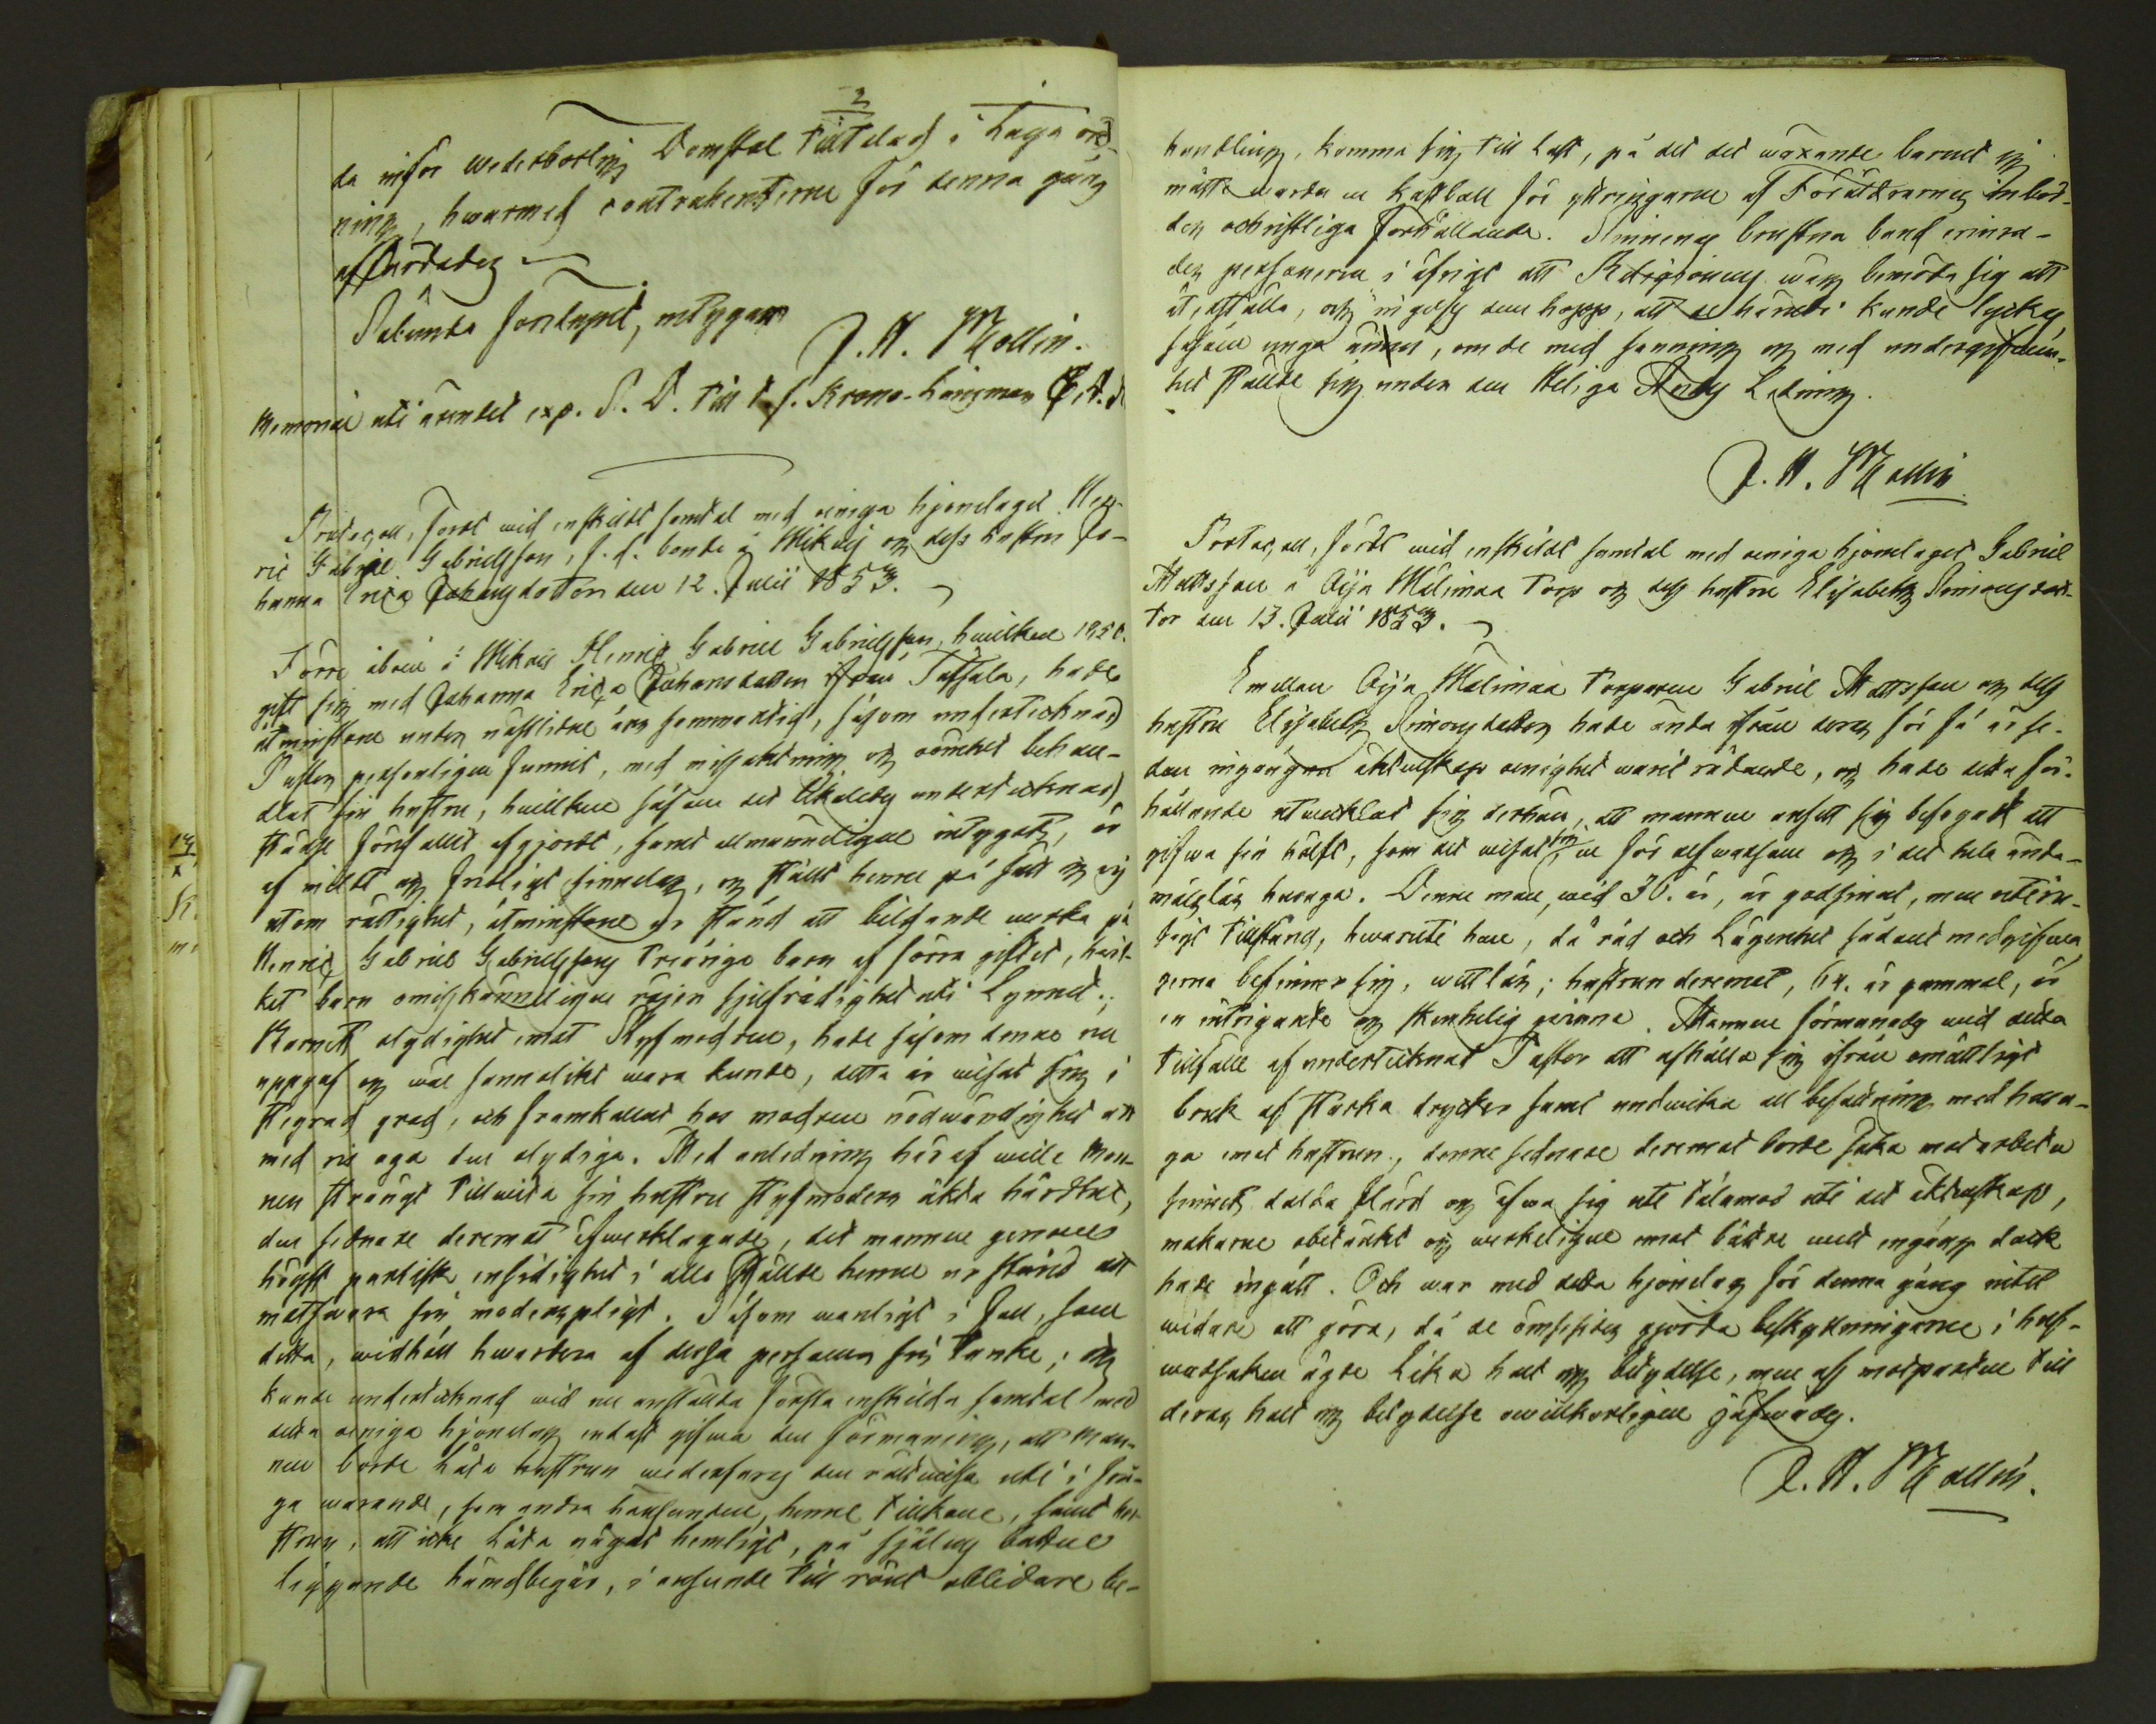 2
da inför wederbörlig Domstol tilltalas i Laga ord-
ning, hwarmed contrahenterne för denna gång
affärdades
Sålunda förelupet, intygar
J. H. Mollin.
Memorial uti ärendet exp. S. D. till t. f. Krono-Länsman
Protocoll, fördt wid enskildt samtal med oeniga hjonelaget Hen-
ric Gabriel Gabrielsson, f. d. bonde å Mikois och dess hustru Jo-
hanna Erica Johansdotter den 12. Julii 1853.
Förre åboen å Mikois Henric Gabriel Gabrielsson, hwilken 1850.
gift sig med Johanna Erica Johansdotter ifrån Tassala, hade
åtminstone under nästlidne års sommartid, såsom undertecknad
Pastor personligen funnit, med missaktning och oömhet behan-
dlat sin hustru, hwilken såsom det likaledes undertecknad
tränse försallit afgjordt, samt allmänneligen intygats, är
af mildt och fridsligt sinnelag, och ställt henne på sätt och wis
utom rättighet, åtminstone ur stånd att bildande werka på
Henric Gabriel Gabrielssons treåriga barn af förra giftet, hwil-
ket barn omisskänneligen röjer sjelfrådighet uti Lynnet.;
Barnets olydighet emot Styfmodren, hade såsom denne nu
uppgaf och wäl sannolikt wara kunde, detta år wisat sig i
stegrad grad, och framkallat hos modren nödwändighet att
med ris aga den olydiga. Med anledning häraf wille Man-
nen strängt tillwita sin hustru styfmoders äkta hårdhet,
den sednare deremot öfwerklagade, det mannen genom
högst partisk ensidighet i allo ställde henne ur stånd att
motswara sin moderspligt. Såsom wanligt i fall, som
detta, widhöll hwardera af dessa personer sin tanke; och
kunde undertecknad wid nu anställda första enskilda samtal med
detta oeniga hjonelag endast gifwa den förmaning, att Man-
nen borde låta hustrun wederfaras den rättwisa uti i frå-
ga warande, som andra hänseenden, henne tillkom, samt hu-
strun, att icke låta något hemligt, på själens botten
liggande hämdbegär, i anseende till rönt oblidare be-
handling, komma sig till last, på det det wäxande barnet ej
måtte warda en kastboll för yttringarne af Föräldrarnes inbör-
des ochristliga förhållande. Sinnenas brustna band erinra-
des personerne i öfrigt att Religionens wäg bemöda sig att
återställa, och ingafs dem hopp, att de häruti kunde lyckas
såsom unga ännu, om de med sanning och med undergifwen-
het ställde sig under den Heliga Andes Ledning.
J. H. Mollin
Protocoll, fördt wid enskildt samtal med oeniga hjonelaget Gabriel
Mattsson å Oija Mälimaa torp och dess hustru Elisabeth Simonsdot-
ter den 13. Julii 1853.
Emellan Oija Mälimaa torparen Gabriel Mattsson och dess
hustru Elisabeth Simonsdotter hade ända ifrån deras för få år se-
dan ingångna äktenskap oenighet warit rådande, och hade detta för-
hållande utwecklat sig derhän, att mannen ansett sig befogad att
gifwa sin hälft, som det wisat sig, en för elfwadsam och i det hela ända-
målslös huraga. Denne man, wid 30. år, är godsint, men uti ru-
sigt tillstånd, hwaruti han, då råd och Lägenhet sådant medgifwa
gerna befinner sig, wettlös; hustrun deremot, 64. år gammal, är
en intrigante och skenhelig qwinna. Mannen förmanades wid detta
tillfälle af undertecknad Pastor att afhålla sig ifrån omåttligt
bruk af starka drycker samt undwika all befattning med hura-
ga emot hustrun., denne sednare deremot borde söka motarbeta
sinnets dolda flärd och öfwa sig uti tålamod uti det äktenskap,
makarne obetänkt och werkeligen emot bättre wett ingång dock
hade ingått. Och war med detta hjonelag för denna gång intet
widare att göra, då de ömsesidigt gjorda beskyllningarne i huf-
wudsaken ägde Lika halt och betydelse, men af motparten till
deras halt och betydelse owillkorligen jäfwades.
J. H. Mollin.